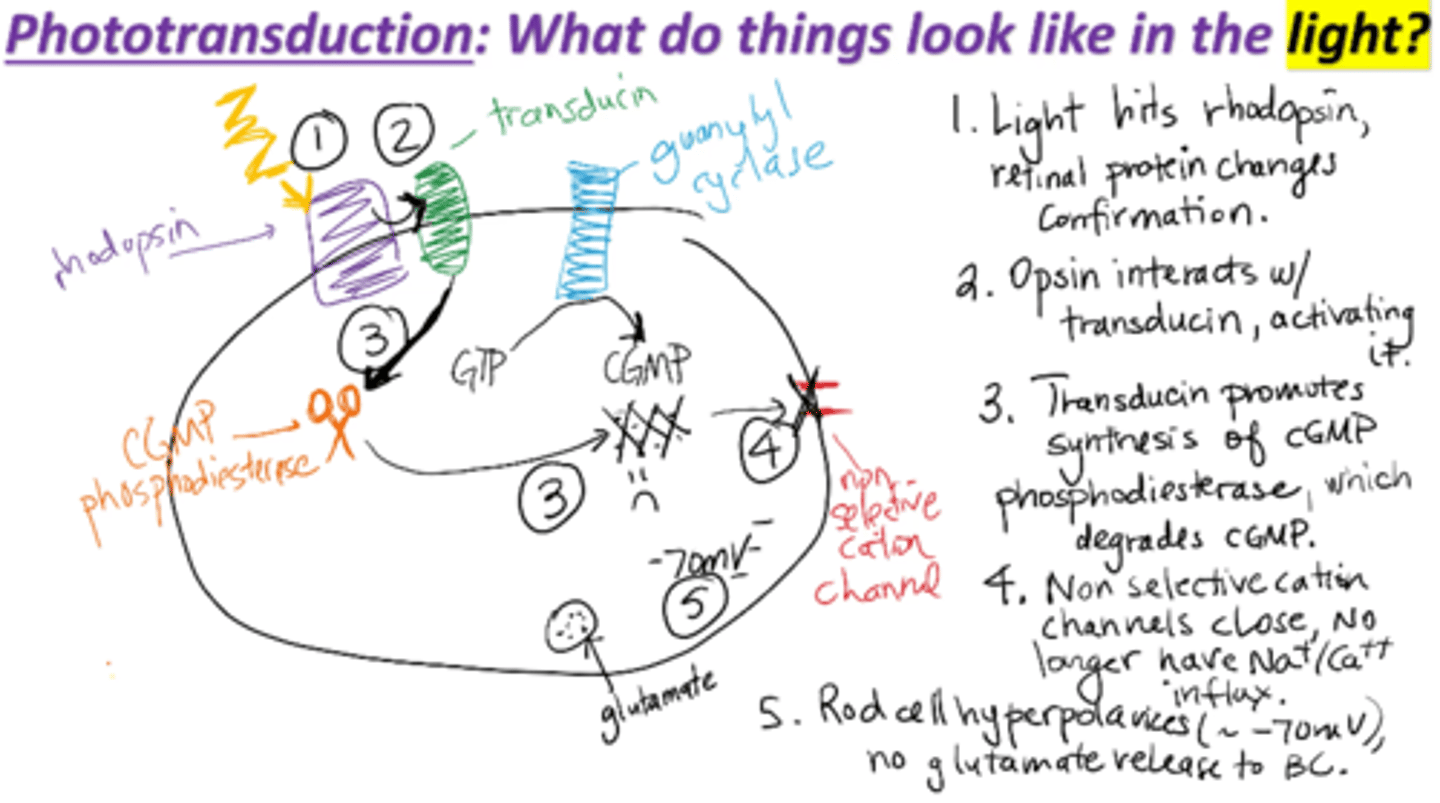 Phototransduction: What do things look like in the light?
1
2
transducin
guanylyl
cyclase
rhodopsin
3
GTP
CGMP
CGMP
phosphodiesterase
3
4
non-
selective
cation
channel
-70mV
5
glutamate
1. Light hits rhodopsin,
retinal protein changes
Confirmation.
2. Opsin interacts w/
transducin, activating
it.
3. Transducin promotes
synthesis of cGMP
phosphodiesterase, which
degrades cGMP.
4. Non selective cation
channels close, No
longer have Na+/Ca++
influx.
5. Rod cell hyperpolarizes (~ -70mV),
no glutamate release to BC.